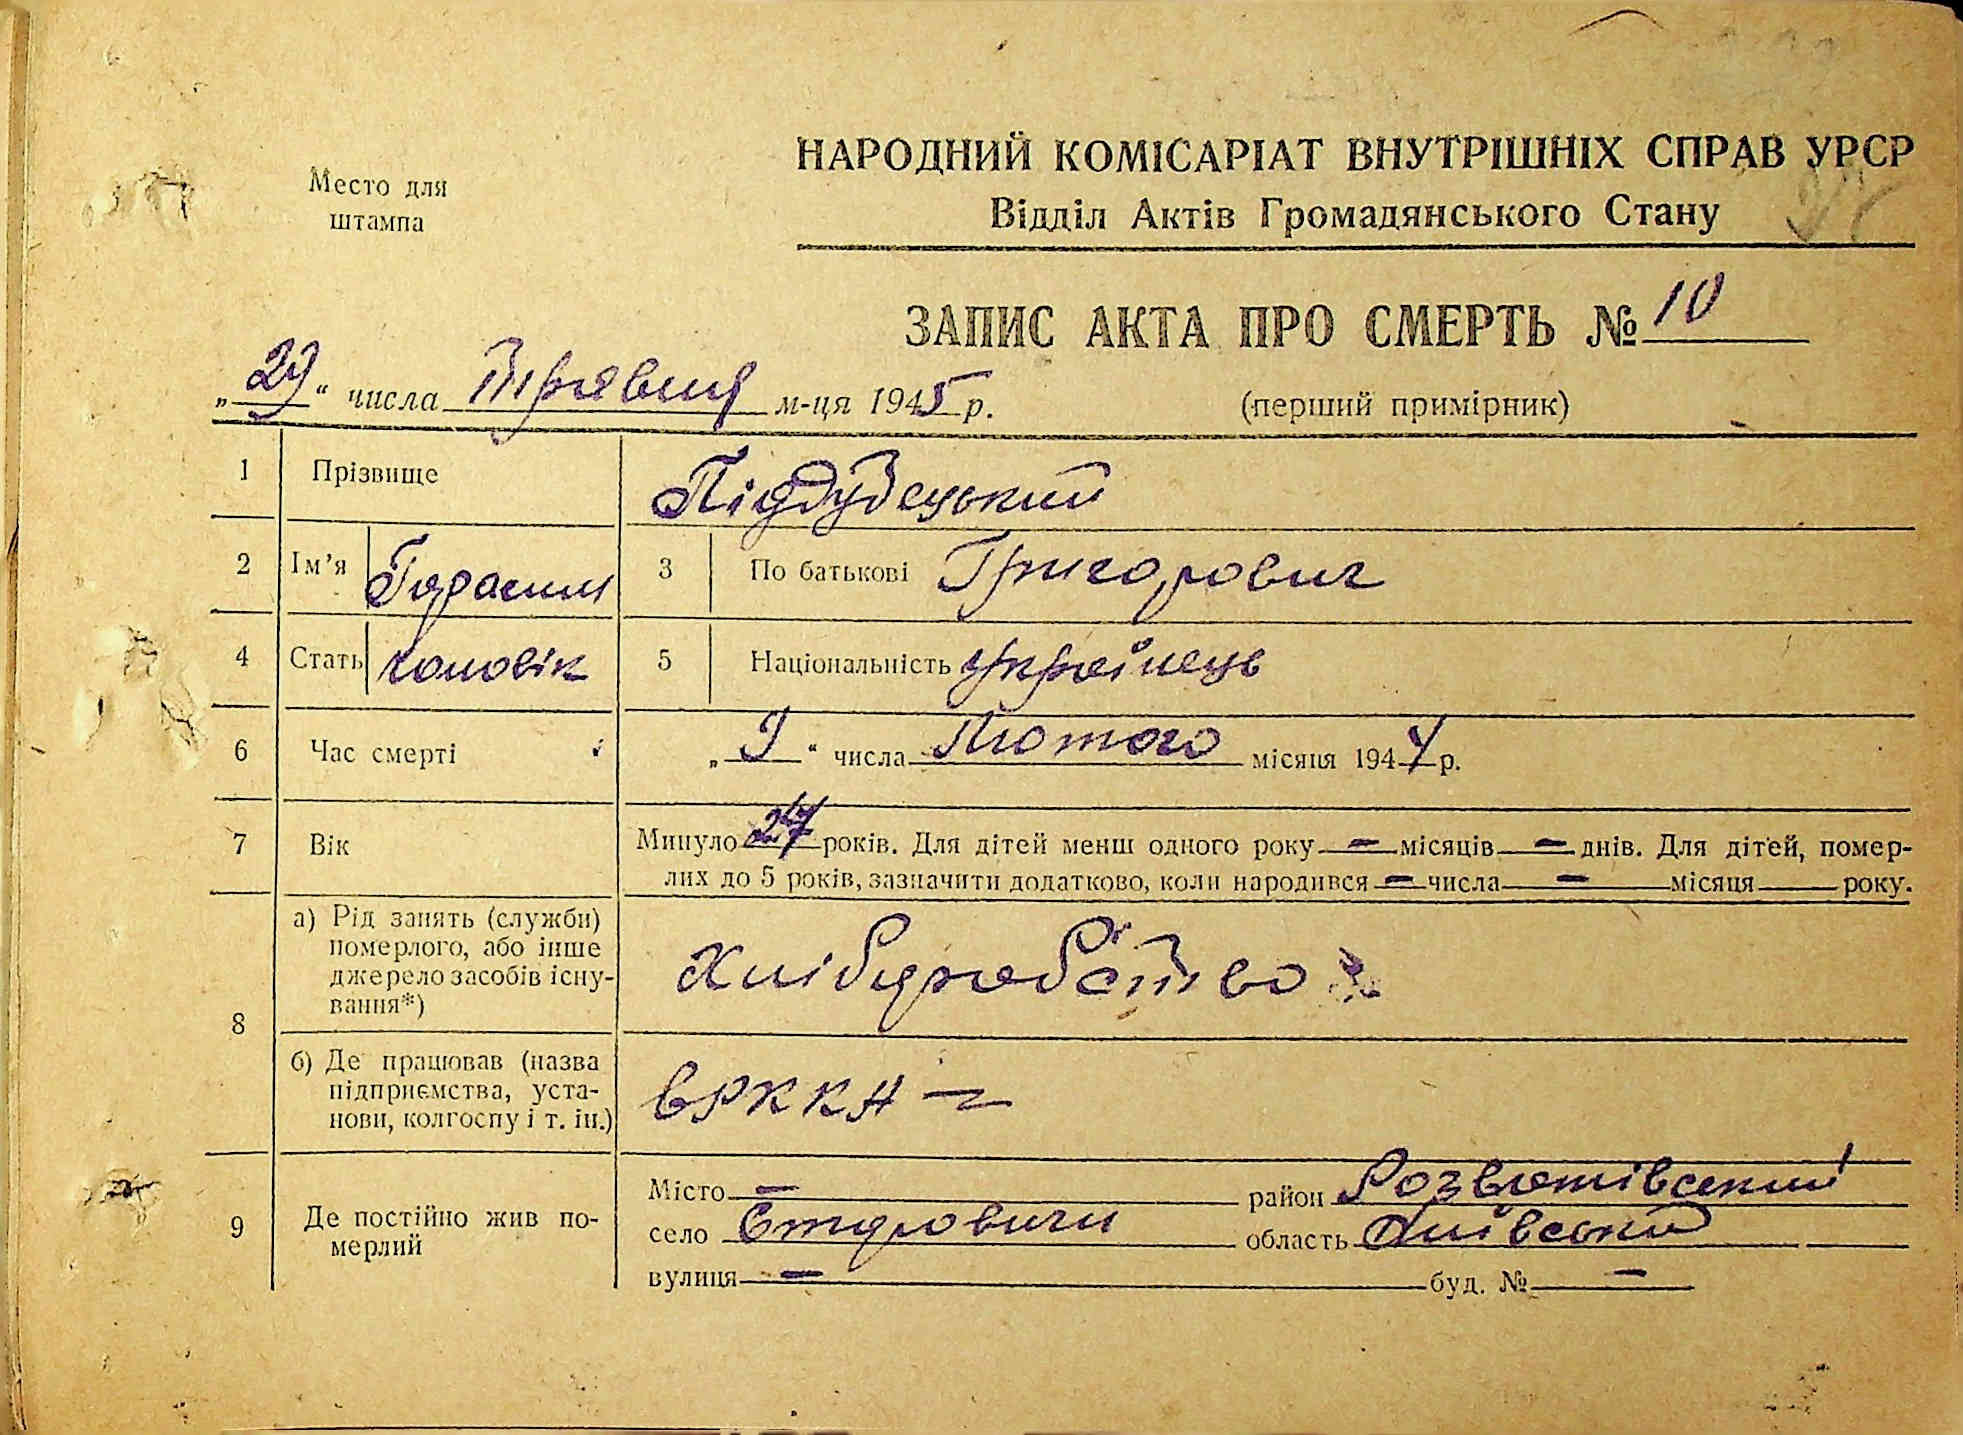 НАРОДНИЙ КОМІСАРІАТ ВНУТРІШНІХ СПРАВ УРСР
Відділ Актів Громадянського Стану
Место для
штампа
ЗАПИС АКТА ПРО СМЕРТЬ № 10
„29“ числа Травня м-ця 1945 р.
(перший примірник)
1 Прізвище Піддубецький
2 Ім’я Гарасим 3 По батькові Григорович
4 Стать чоловік 5 Національність українець
6 Час смерті „9“ числа Лютого місяця 1944 р.
7 Вік Минуло 27 років. Для дітей менш одного року — місяців — днів. Для дітей, помер-
лих до 5 років, зазначити додатково, коли народився — числа — місяця року.
8 а) Рід занять (служби)
померлого, або інше
джерело засобів існу-
вання*)
Хліборобство
б) Де працював (назва
підприємства, уста-
нови, колгоспу і т. ін.)
в РККА —
9 Де постійно жив по-
мерлий
Місто — район Розважівський
село Старовичи область Київська
вулиця — буд. № —